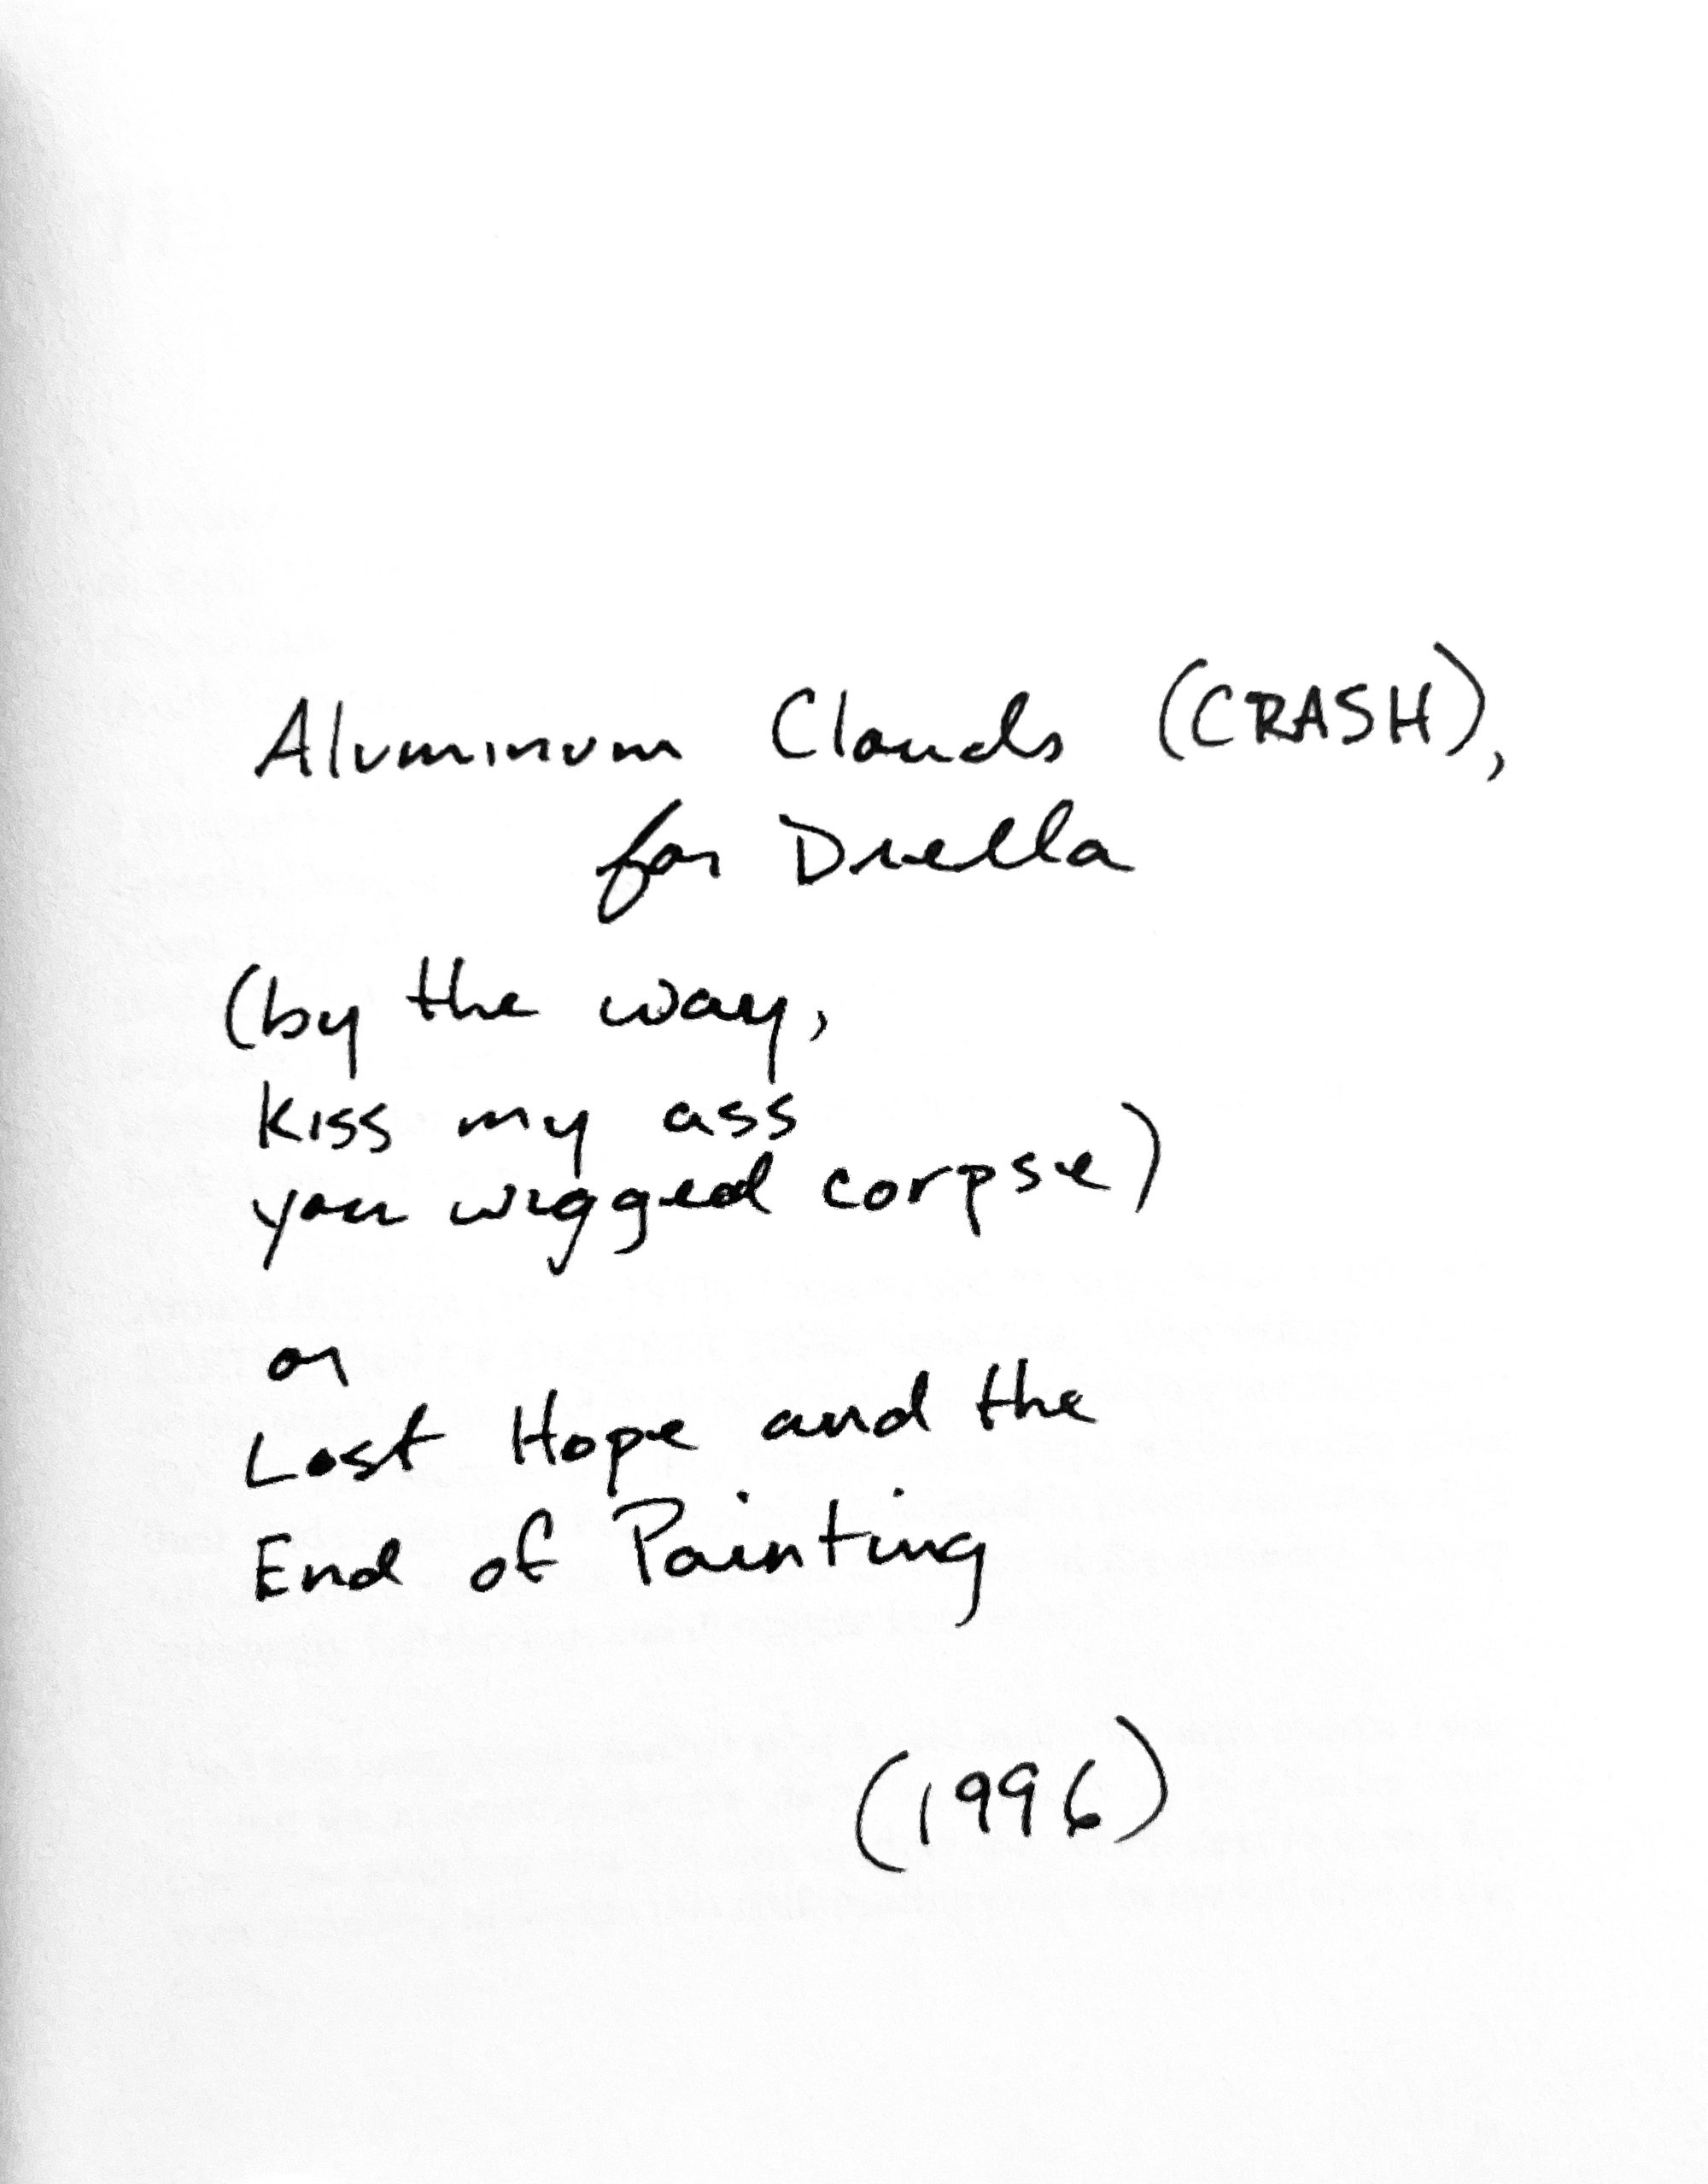 Aluminum Clouds (CRASH),
for Drella
(by the way,
kiss my ass
you wigged corpse)
or
Lost Hope and the
End of Painting
(1996)